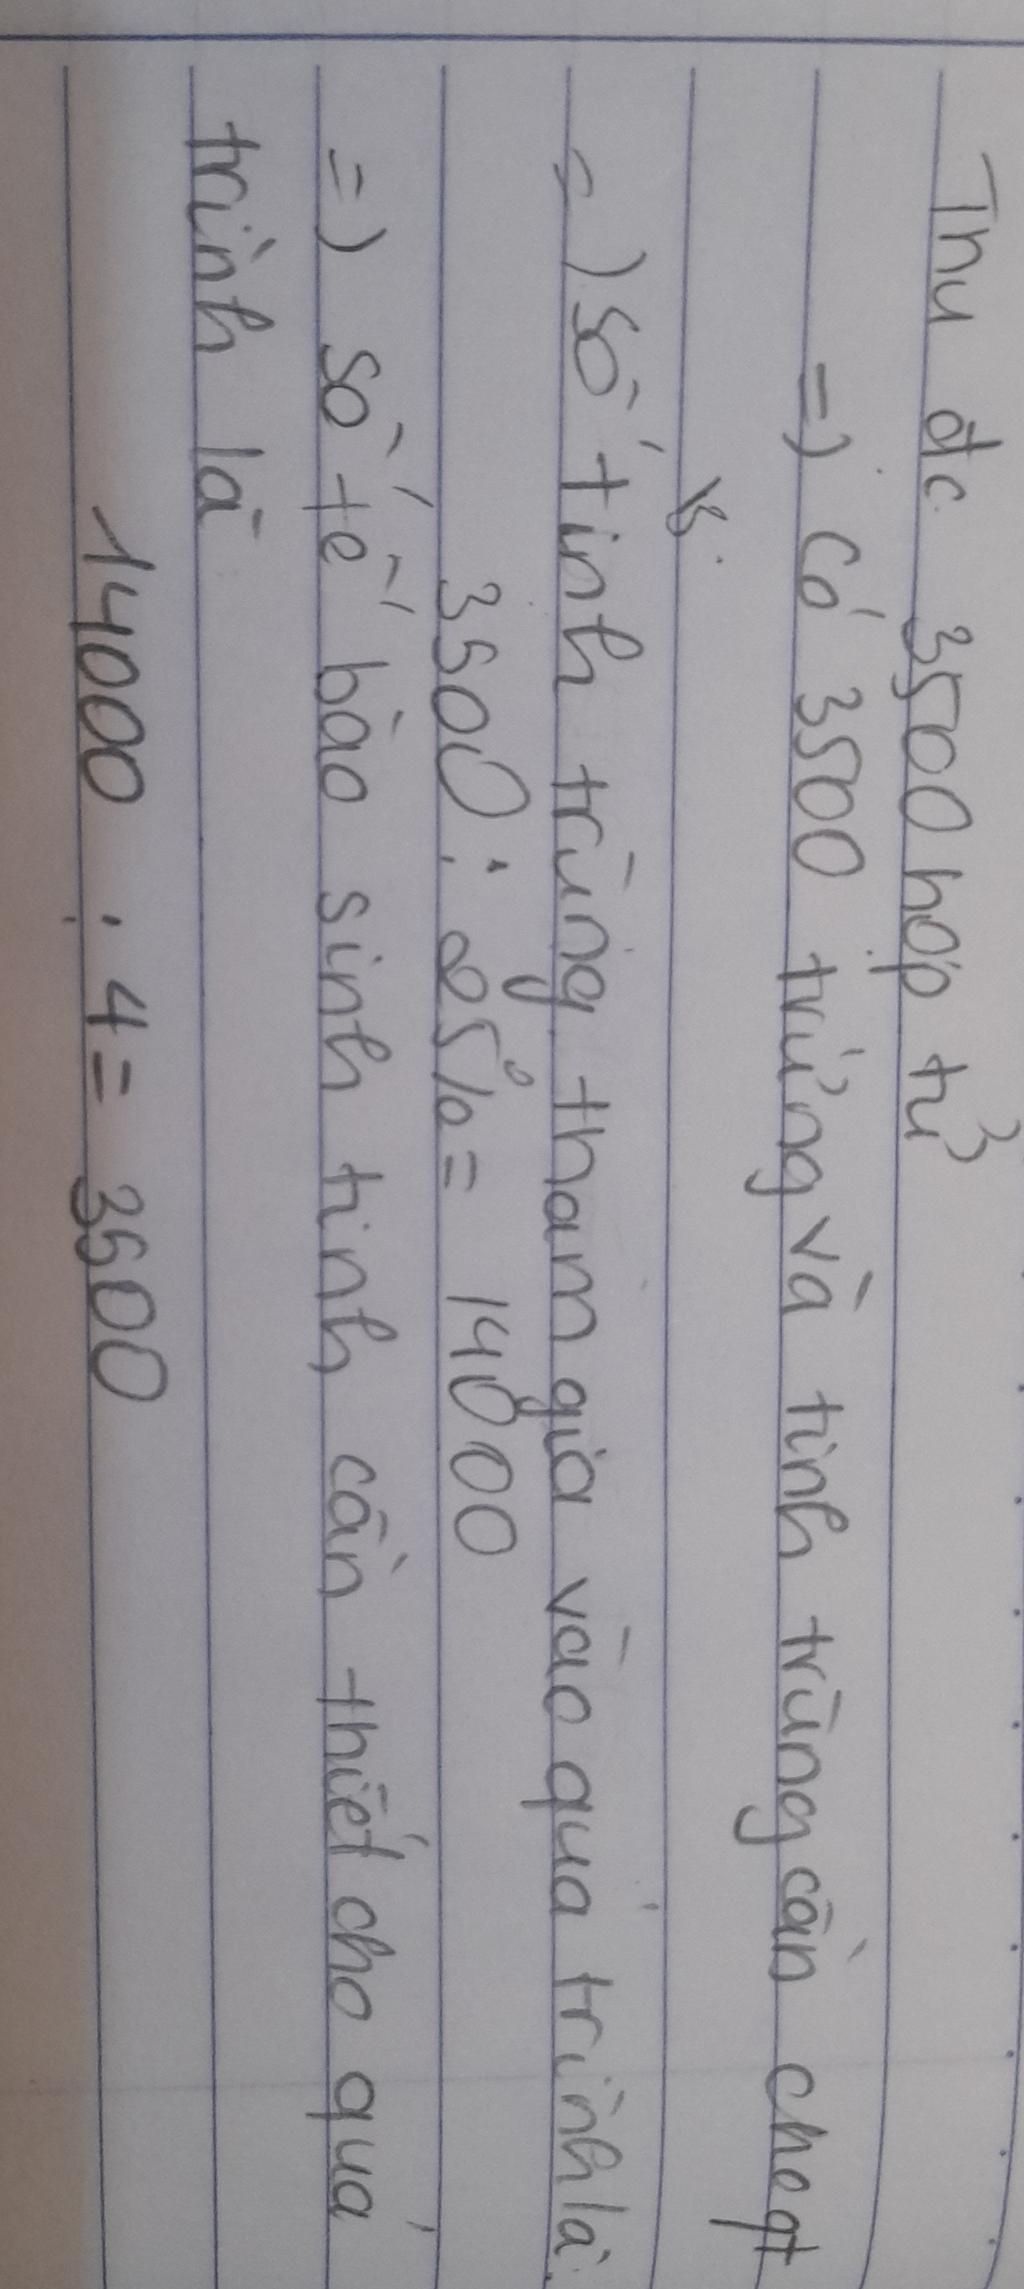 Thu đc 3500 hợp tử
=) Có 3500 trứng và tinh trùng cần cho qt
=) số tinh trùng tham gia vào quá trình là
3500 : 25% = 14000
=) số tế bào sinh tinh cần thiết cho quá
trình là
14000 : 4 = 3500